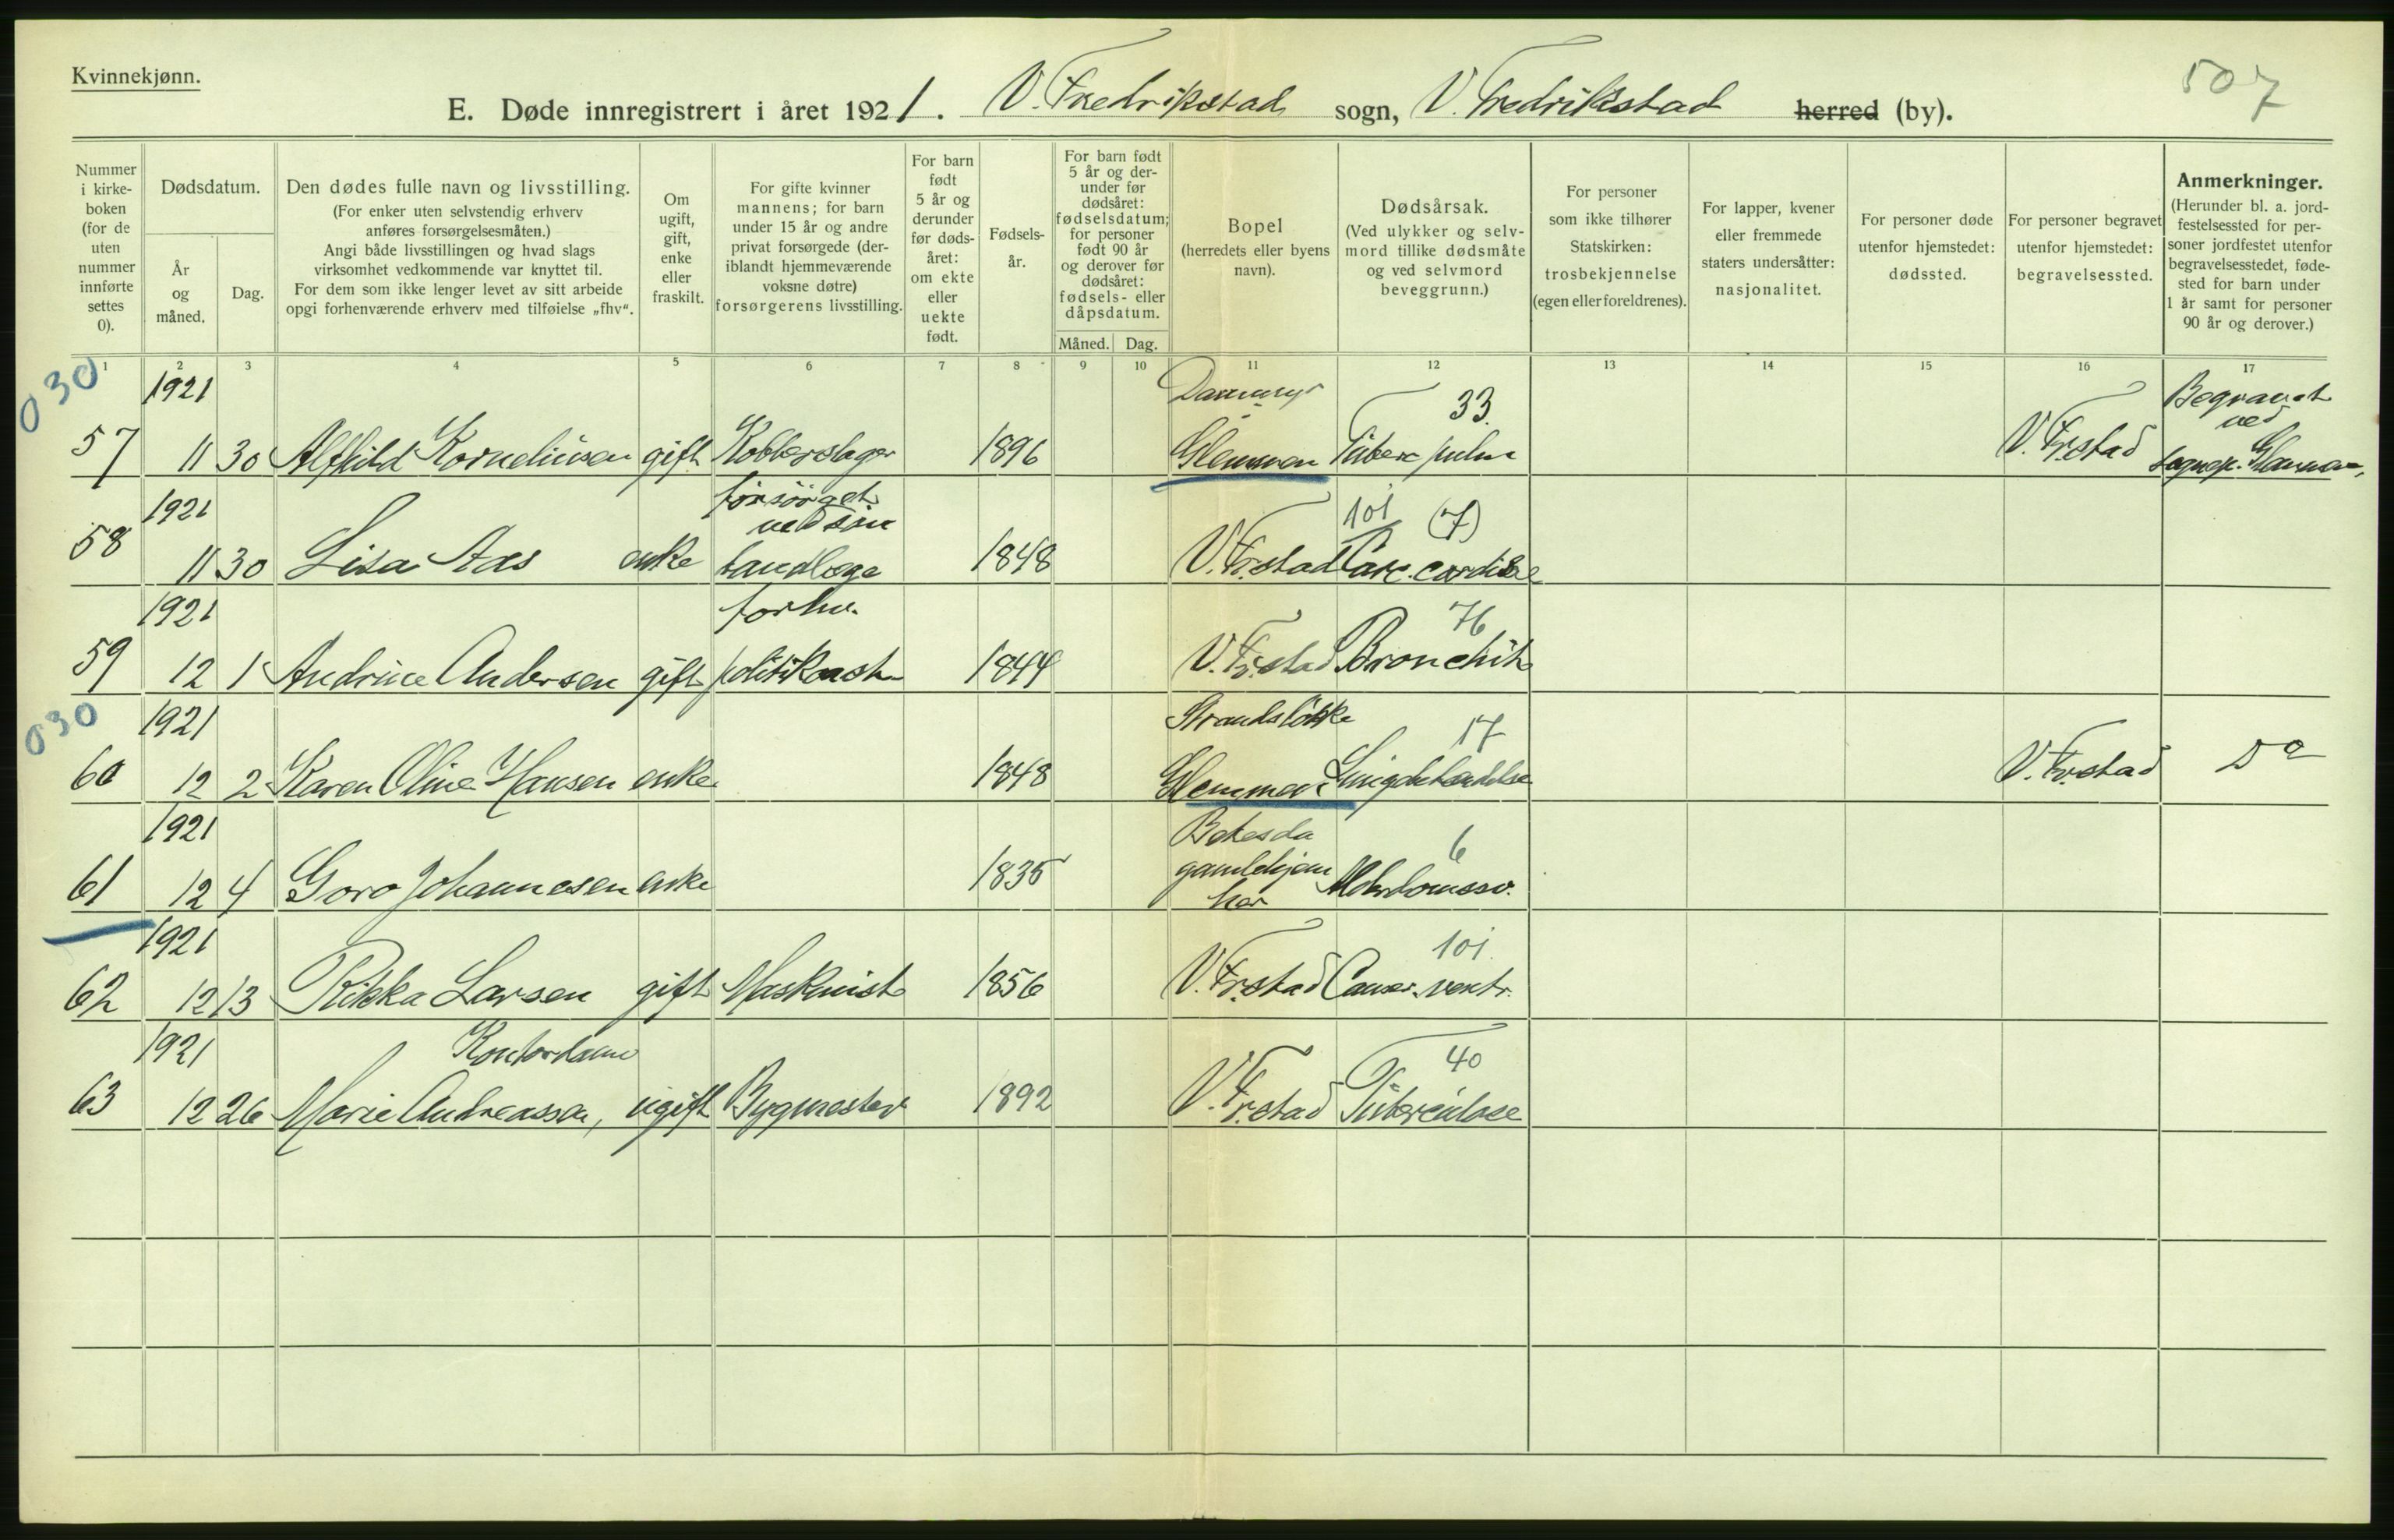 Kvinnekjønn.
507
E. Døde innregistrert i året 1921. V. Fredrikstad sogn, V. Fredrikstad herred (by).
Nummer i kirke-boken (for de uten nummer innførte settes 0).
Dødsdatum.
År og måned.
Dag.
Den dødes fulle navn og livsstilling.
(For enker uten selvstendig erhverv anføres forsørgelsesmåten.)
Angi både livsstillingen og hvad slags virksomhet vedkommende var knyttet til.
For dem som ikke lenger levet av sitt arbeide opgi forhenværende erhverv med tilføielse „fhv“.
Om ugift, gift, enke eller fraskilt.
For gifte kvinner mannens; for barn under 15 år og andre privat forsørgede (der-iblandt hjemmeværende voksne døtre) forsørgerens livsstilling.
For barn født 5 år og derunder før døds-året: om ekte eller uekte født.
Fødsels-år.
For barn født 5 år og der-under før dødsåret: fødselsdatum; for personer født 90 år og derover før dødsåret: fødsels- eller dåpsdatum.
Måned.
Dag.
Bopel
(herredets eller byens navn).
Dødsårsak.
(Ved ulykker og selv-mord tillike dødsmåte og ved selvmord beveggrunn.)
For personer som ikke tilhører Statskirken: trosbekjennelse (egen eller foreldrenes).
For lapper, kvener eller fremmede staters undersåtter: nasjonalitet.
For personer døde utenfor hjemstedet: dødssted.
For personer begravet utenfor hjemstedet: begravelsessted.
Anmerkninger.
(Herunder bl. a. jord-festelsessted for per-soner jordfestet utenfor begravelsesstedet, føde-sted for barn under 1 år samt for personer 90 år og derover.)
1 2 3 4 5 6 7 8 9 10 11 12 13 14 15 16 17
030
1921 33. Begravet ved
57 11 30 Alfhild Korneliusen gift Kobberslager 1896 Glemmen Tuberc pulm V. Fr.stad sognep. Glemmen,
1921 forsörget ved sin 101 (7)
58 11 30 Lisa Aas enke tandlæge 1848 V. Fr.stad Parc. cordis
1921 forhv. 76
59 12 1 Andrine Andersen gift politikonst 1844 V. Fr.stad Bronchit
030
1921 Strandsløkke 17
60 12 2 Karen Oline Hansen enke 1848 Glemmen V. Fr.stad Do
1921 Betesda 6
61 12 4 Goro Johannesen enke 1835 gamlehjem her Alderdomssv.
1921 101
62 12 13 Rikka Larsen gift Maskinist 1856 V. Fr.stad Cancer. ventr.
1921 Kontordame 40
63 12 26 Marie Andreassen, ugift Bygmester 1892 V. Fr.stad Tuberculose